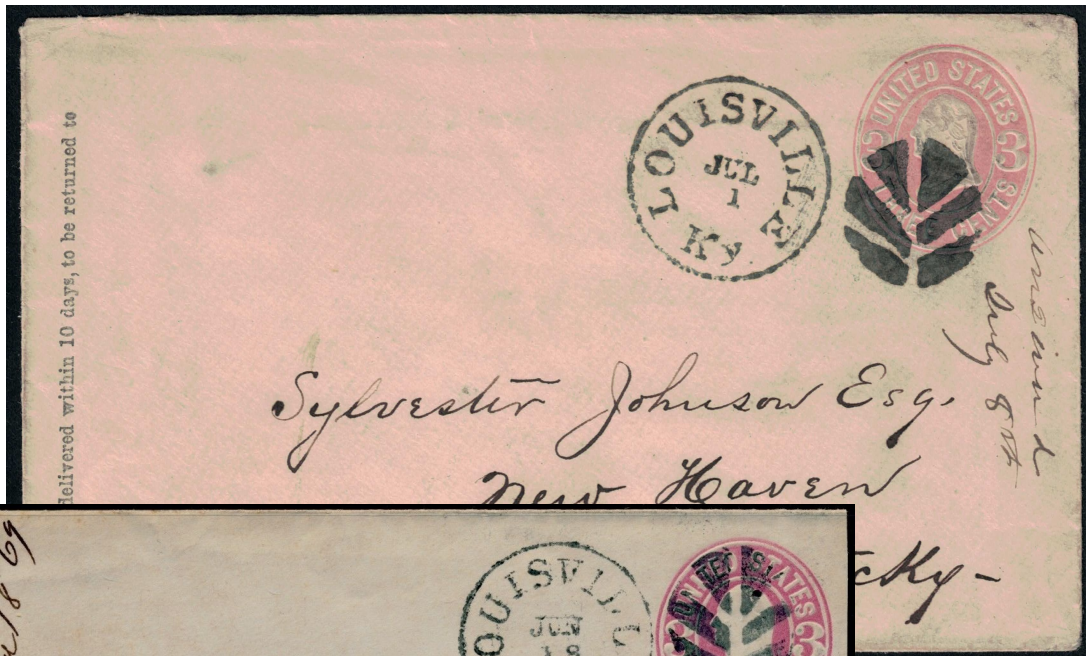 delivered within 10 days, to be returned to
LOUISVILLE
JUL
1
Ky.
UNITED STATES
3 3
CENTS
July 8th
Sylvester Johnson Esq.
New Haven
Ky-
1869
LOUISVILL
JUN
18
UNITED STATES
3